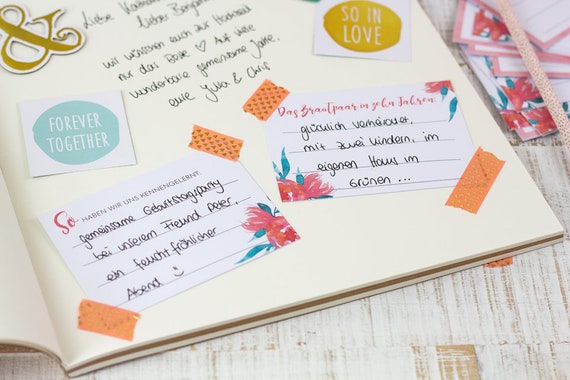 &
Liebe
lieber
wir wünschen euch zur Hochzeit
nur das Beste ♡ Auf viele
wunderbare gemeinsame Jahre.
eure Julia & Chris
SO IN
LOVE
FOREVER
TOGETHER
Das Brautpaar in zehn Jahren:
glücklich verheiratet,
mit zwei Kindern, im
eigenen Haus im
Grünen ...
So HABEN WIR UNS KENNENGELERNT:
gemeinsame Geburtstagsparty
bei unserem Freund Peter,
ein feucht fröhlicher
Abend ☺